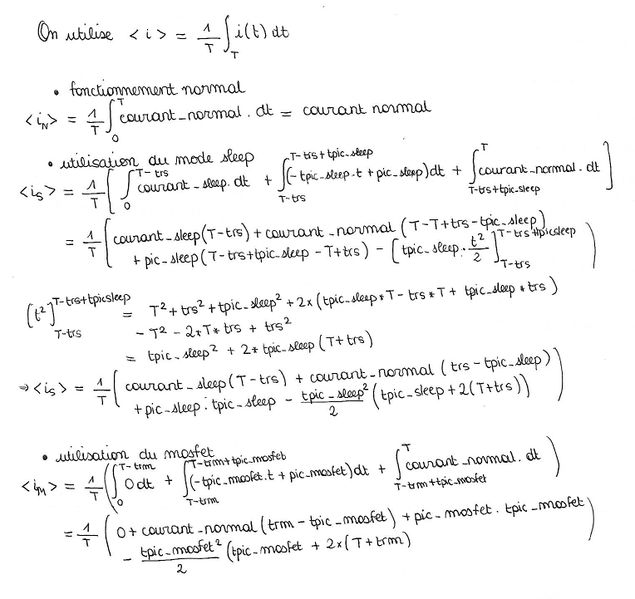 On utilise <i> = 1/T ∫_T i(t) dt
• fonctionnement normal
<i_N> = 1/T ∫_0^T courant_normal . dt = courant normal
• utilisation du mode sleep
<i_S> = 1/T [ ∫_0^{T-trs} courant_sleep . dt + ∫_{T-trs}^{T-trs+tpic_sleep} (-tpic_sleep . t + pic_sleep) dt + ∫_{T-trs+tpic_sleep}^T courant_normal . dt ]
= 1/T ( courant_sleep (T-trs) + courant_normal (T-T+trs-tpic_sleep)
+ pic_sleep (T-trs+tpic_sleep - T+trs) - [ tpic_sleep . t²/2 ]_{T-trs}^{T-trs+tpicsleep} )
[t²]_{T-trs}^{T-trs+tpicsleep} = T² + trs² + tpic_sleep² + 2x (tpic_sleep * T - trs * T + tpic_sleep * trs)
- T² - 2*T* trs + trs²
= tpic_sleep² + 2* tpic_sleep (T+trs)
⇒ <i_S> = 1/T ( courant_sleep (T-trs) + courant_normal (trs-tpic_sleep)
+ pic_sleep . tpic_sleep - tpic_sleep²/2 (tpic_sleep + 2(T+trs)) )
• utilisation du mosfet
<i_M> = 1/T ( ∫_0^{T-trm} 0 dt + ∫_{T-trm}^{T-trm+tpic_mosfet} (-tpic_mosfet . t + pic_mosfet) dt + ∫_{T-trm+tpic_mosfet}^T courant_normal . dt )
= 1/T ( 0 + courant_normal (trm - tpic_mosfet) + pic_mosfet . tpic_mosfet
- tpic_mosfet²/2 (tpic_mosfet + 2x (T+trm) )